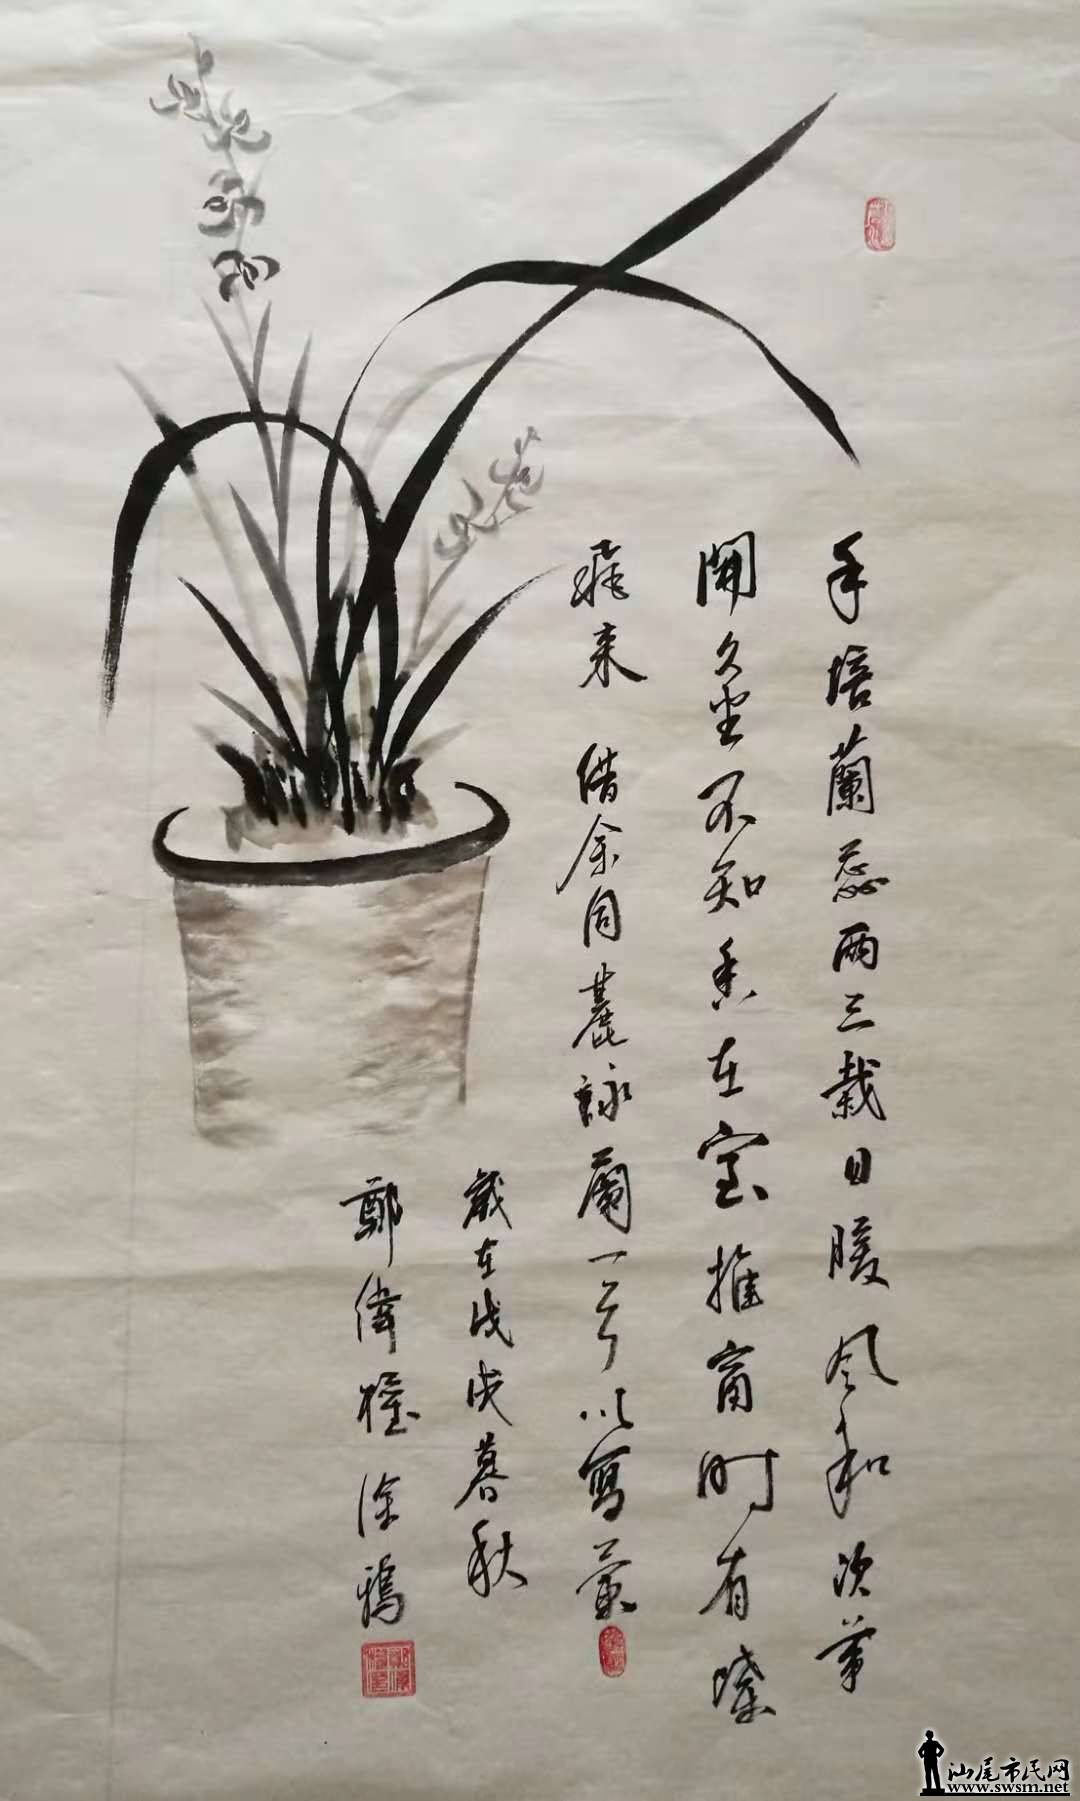 手培蘭蕊兩三栽日暖风和次第
開久坐不知香在室推窗时有蝶
飛来 借余同麓詠蘭一首以寫
歲在戊戌暮秋
鄭偉 涂鴉
汕尾市民网
www.swsm.net